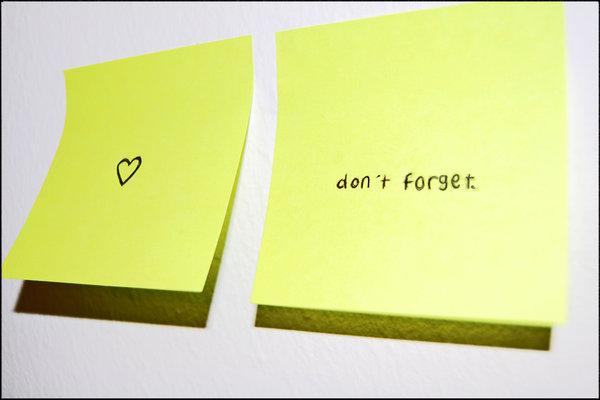 ♡
don't forget.